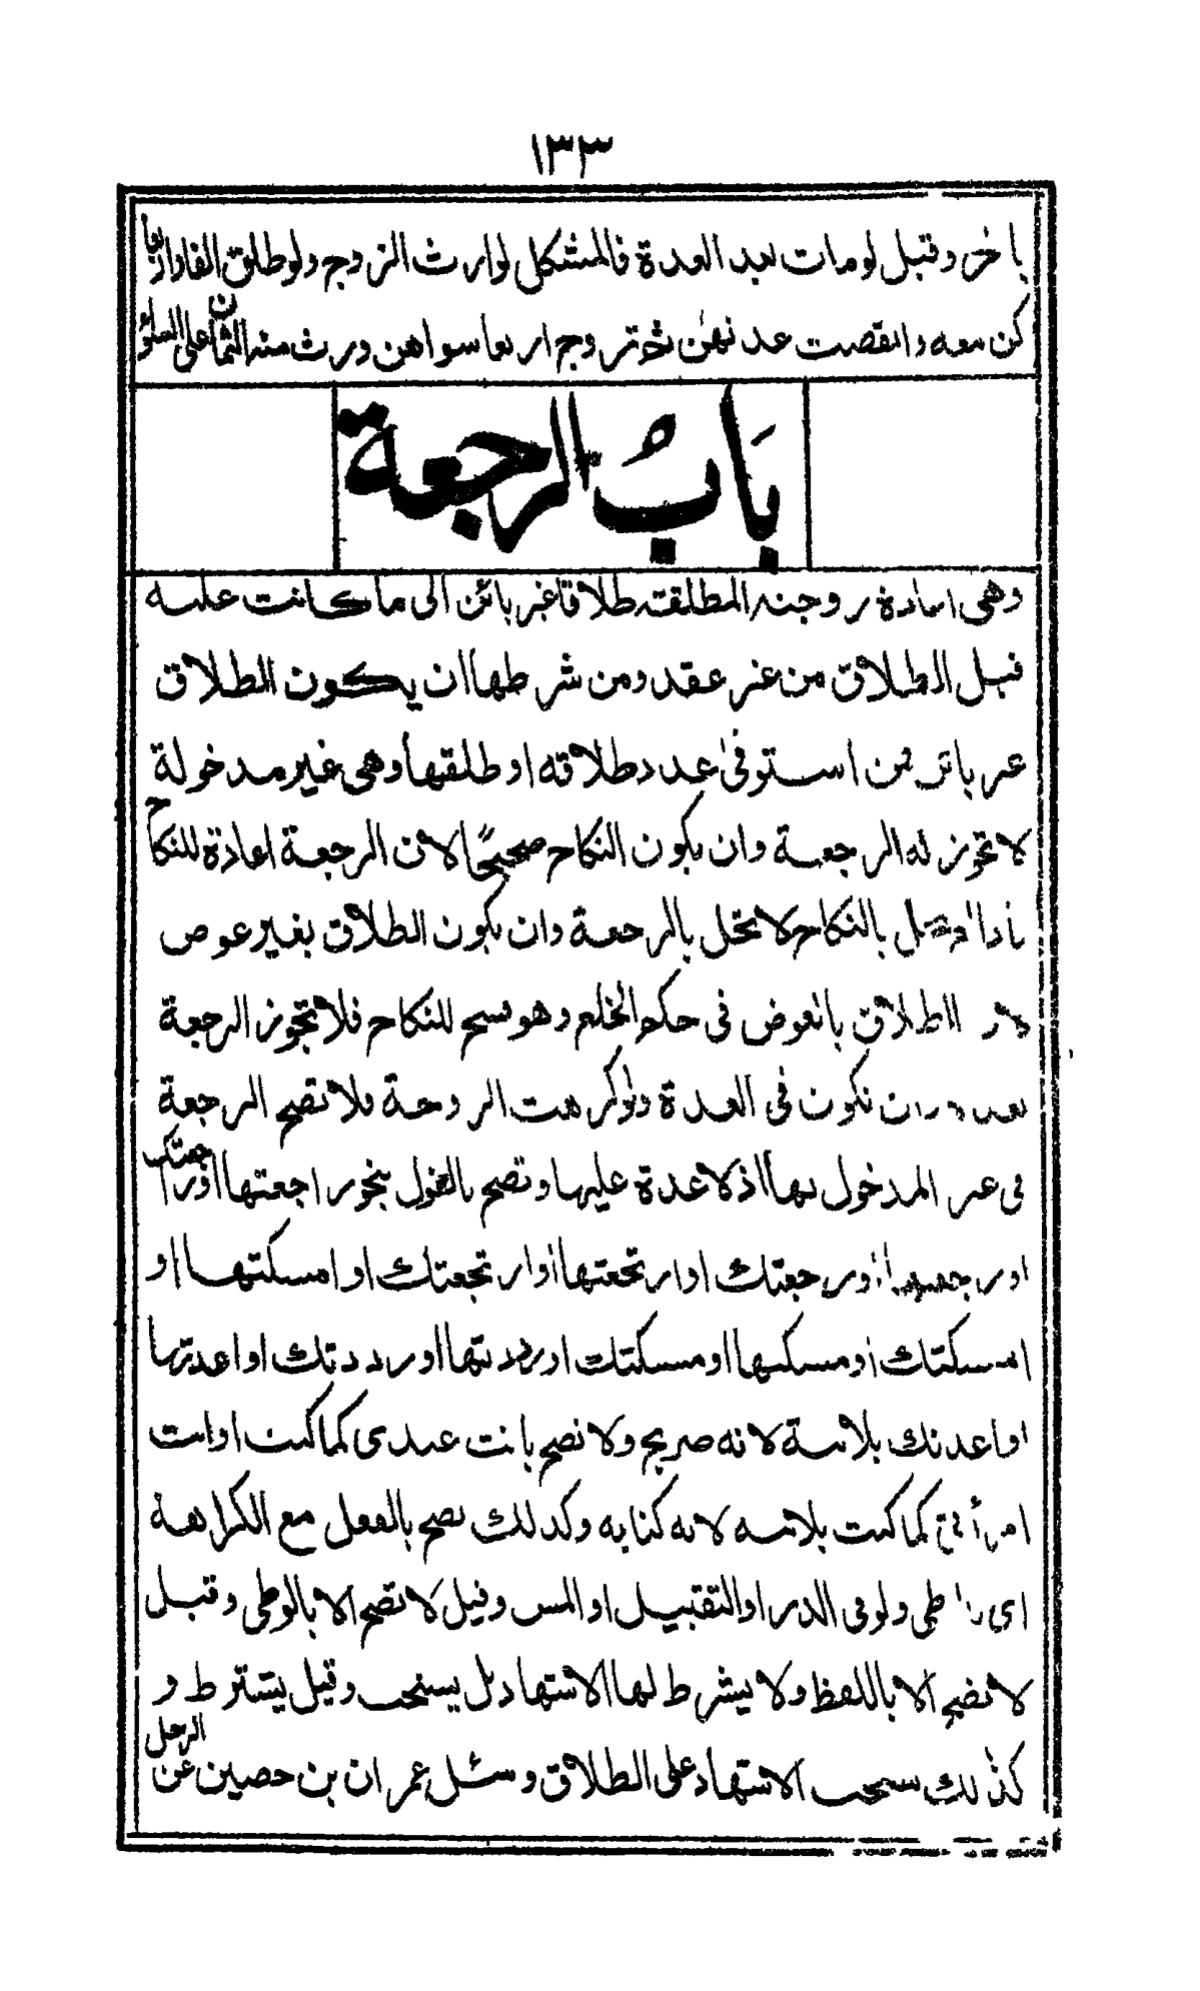 ١٣٣
باخر وقبل لو مات بعد العدة فالمشكل لوارث الزوج ولو طلق الفا واربعا
كن معه وانقضت عدتهن ثم تزوج اربعا سواهن ورث منه الثمان على السواء
بَابُ الرجعة
وهى اعادة زوجته المطلقة طلاقا غير بائن الى ما كانت عليه
قبل الطلاق من غير عقد ومن شرطها ان يكون الطلاق
غير بائن فمن استوفى عدد طلاقه او طلقها وهى غير مدخولة
لا تجوز له الرجعة وان يكون النكاح صحيحًا لان الرجعة اعادة للنكاح
بالنكاح لا تحل بالرجعة وان يكون الطلاق بغير عوض
لان الطلاق بالعوض فى حكم الخلع وهو فسخ للنكاح فلا تجوز الرجعة
بعده وان تكون فى العدة ولو كرهت الزوجة فلا تصح الرجعة
فى غير المدخول بها اذ لا عدة عليها وتصح بالقول بنحو راجعتها او راجعتك
او رجعتها او رجعتك او ارتجعتها او ارتجعتك او امسكتها او
امسكتك او مسكتها او مسكتك او رددتها او رددتك او اعدتها
او اعدتك بلا نية لانه صريح ولا تصح بانت عندى كما كنت او انت
امرأتى كما كنت بلا نية لانه كناية وكذلك تصح بالفعل مع الكراهة
اى ولو فى الدبر او التقبيل او المس وقيل لا تصح الا بالوطى وقيل
لا تصح الا باللفظ ولا يشرط لها الاشهاد بل يستحب وقيل يشترط و
كذلك يستحب الاشهاد على الطلاق وسئل عمران بن حصين عن الرجل